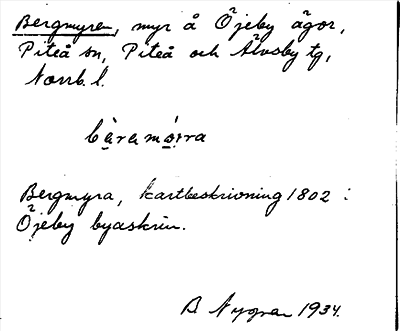 Bergmyren, myr å Öjeby ägor,
Piteå sn, Piteå och Älvsby tg,
Norrb. l.
Bergmyra, kartbeskrivning 1802 i
Öjeby byaskrin.
B Nygren 1934.